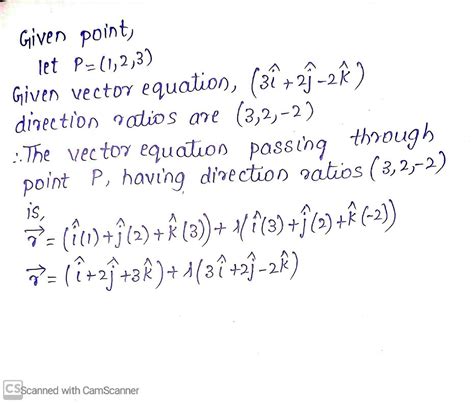 Given point,
let P=(1,2,3)
Given vector equation, (3î+2ĵ-2k̂)
direction ratios are (3,2,-2)
∴The vector equation passing through
point P, having direction ratios (3,2,-2)
is,
r⃗=(î(1)+ĵ(2)+k̂(3))+λ(î(3)+ĵ(2)+k̂(-2))
r⃗=(î+2ĵ+3k̂)+λ(3î+2ĵ-2k̂)
CS Scanned with CamScanner